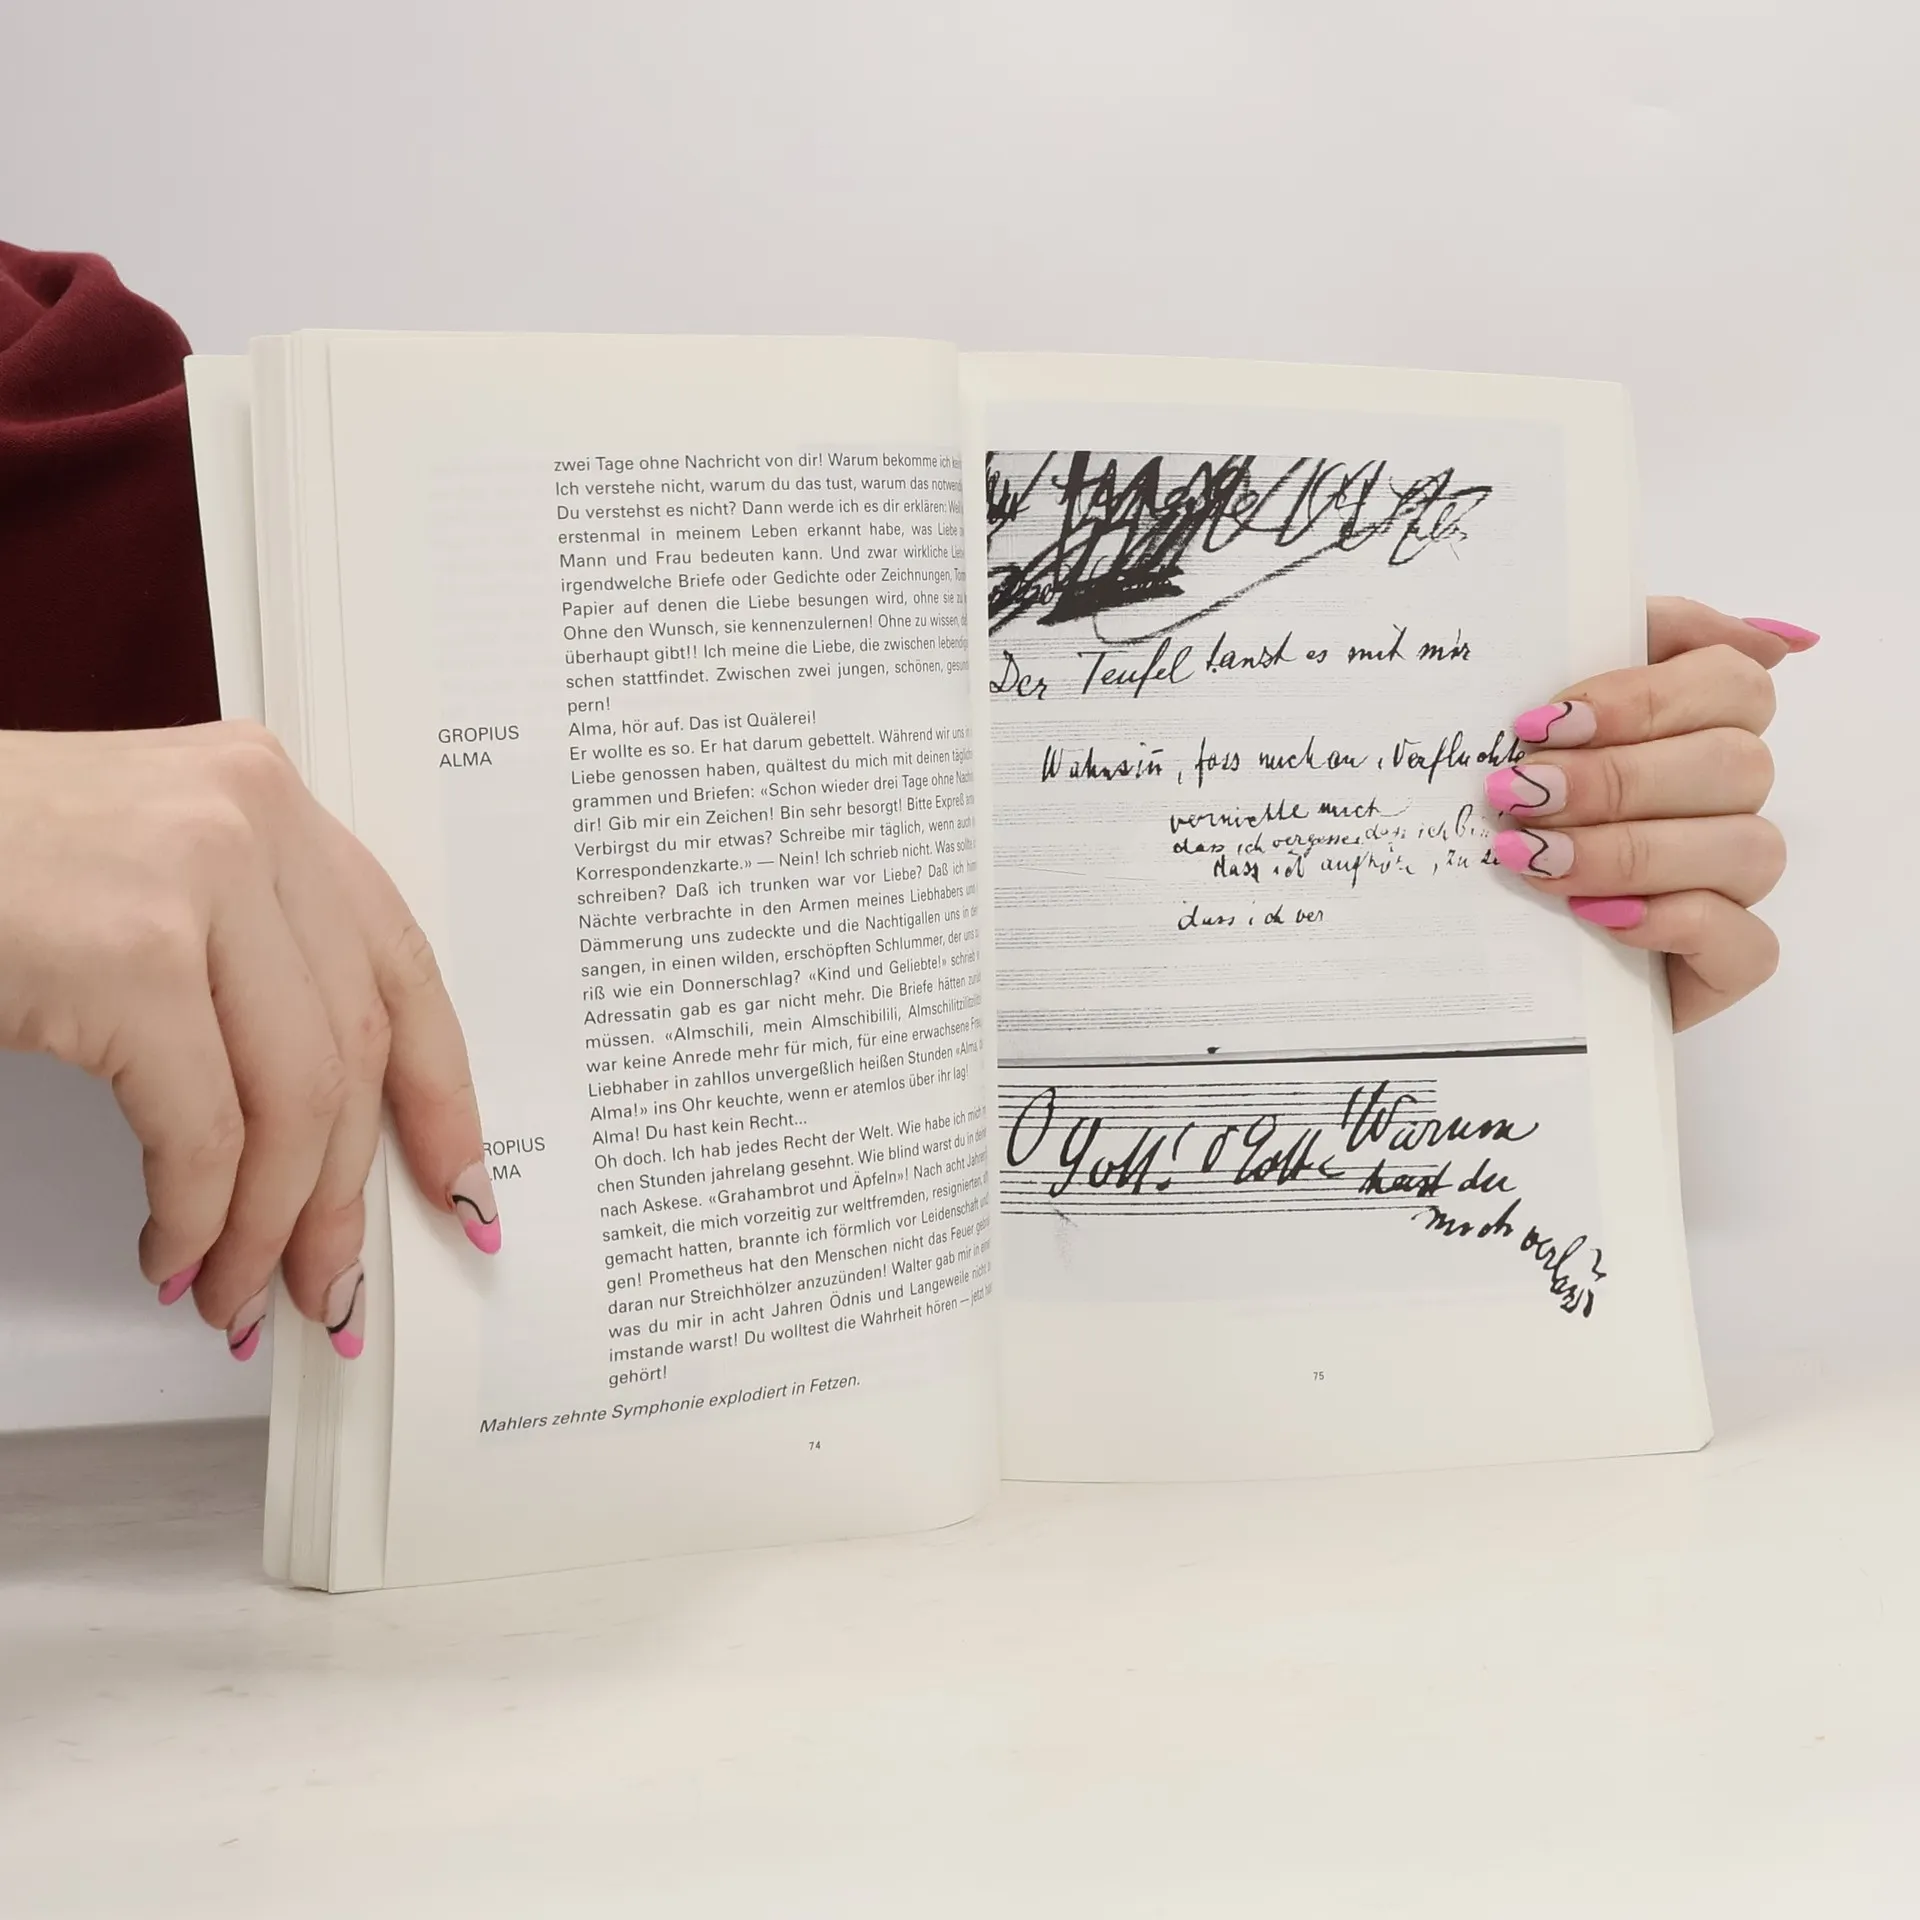 zwei Tage ohne Nachricht von dir! Warum bekomme ich
Ich verstehe nicht, warum du das tust, warum das
Du verstehst es nicht? Dann werde ich es dir erklären:
erstenmal in meinem Leben erkannt habe, was Liebe
Mann und Frau bedeuten kann. Und zwar wirkliche
irgendwelche Briefe oder Gedichte oder Zeichnungen,
Papier auf denen die Liebe besungen wird, ohne sie zu
Ohne den Wunsch, sie kennenzulernen! Ohne zu wissen,
überhaupt gibt!! Ich meine die Liebe, die zwischen
schen stattfindet. Zwischen zwei jungen, schönen,
pern!
GROPIUS Alma, hör auf. Das ist Quälerei!
ALMA Er wollte es so. Er hat darum gebettelt. Während wir uns
Liebe genossen haben, quältest du mich mit deinen
grammen und Briefen: «Schon wieder drei Tage ohne
dir! Gib mir ein Zeichen! Bin sehr besorgt! Bitte Expreß
Verbirgst du mir etwas? Schreibe mir täglich, wenn auch
Korrespondenzkarte.» — Nein! Ich schrieb nicht. Was
schreiben? Daß ich trunken war vor Liebe? Daß ich
Nächte verbrachte in den Armen meines Liebhabers
Dämmerung uns zudeckte und die Nachtigallen uns in
sangen, in einen wilden, erschöpften Schlummer, der uns
riß wie ein Donnerschlag? «Kind und Geliebte!» schrieb
Adressatin gab es gar nicht mehr. Die Briefe hätten
müssen. «Almschili, mein Almschibilili,
war keine Anrede mehr für mich, für eine erwachsene
Liebhaber in zahllos unvergeßlich heißen Stunden «Alma,
Alma!» ins Ohr keuchte, wenn er atemlos über ihr lag!
ROPIUS Alma! Du hast kein Recht...
LMA Oh doch. Ich hab jedes Recht der Welt. Wie habe ich mich
chen Stunden jahrelang gesehnt. Wie blind warst du in
nach Askese. «Grahambrot und Äpfeln»! Nach acht
samkeit, die mich vorzeitig zur weltfremden,
gemacht hatten, brannte ich förmlich vor Leidenschaft
gen! Prometheus hat den Menschen nicht das Feuer
daran nur Streichhölzer anzuzünden! Walter gab mir in
was du mir in acht Jahren Ödnis und Langeweile nicht
imstande warst! Du wolltest die Wahrheit hören — jetzt
gehört!
Mahlers zehnte Symphonie explodiert in Fetzen.
74
Der Teufel tanzt es mit mir
Wahnsin̄, fass mich an, Verfluchte
vernichte mich
dass ich vergesse, dass ich bin
dass ich aufhöre, zu
dass ich ver
O Gott! O Gott! Warum
hast du
mich verlassen?
75